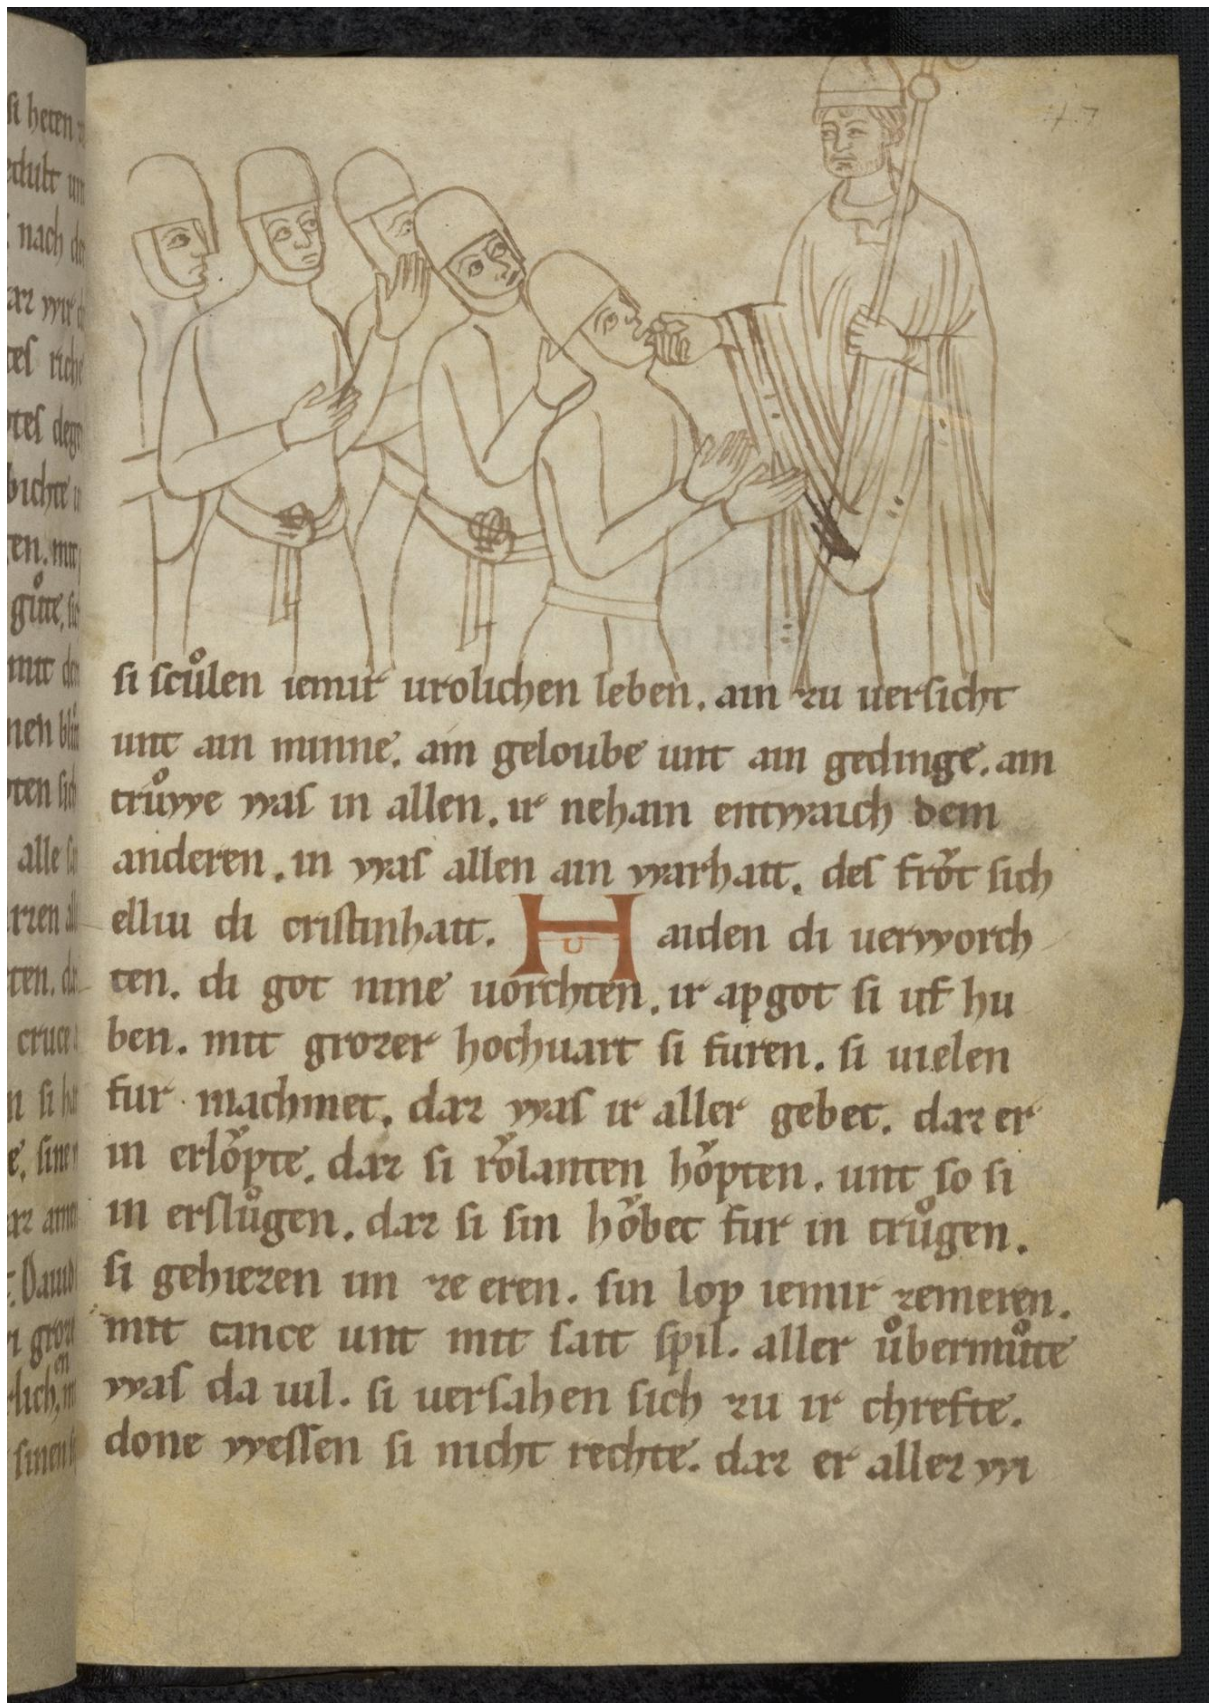 47
ſi ſculͦen iemir urolichen leben. ain zu uerſicht
unt ain minne. ain geloube unt ain gedinge. ain
truͦwe was in allen. ir nehain entwaich dem
anderen. in was allen ain warhait. des froͮt ſich
elliu di criſtinhait. Haiden di uerworch
ten. di got nine uorchten. ir apgot ſi uf hu
ben. mit grozer hochuart ſi furen. ſi uielen
fur machmet. daz was ir aller gebet. daz er
in erloͮpte. daz ſi roͮlanten hoͮpten. unt ſo ſi
in erſluͦgen. daz ſi ſin hoͮbet fur in truͦgen.
ſi gehiezen im ze eren. ſin lop iemir zemeren.
mit tance unt mit ſait ſpil. aller uͦbermuͦte
was da uil. ſi uerſahen ſich zu ir chrefte.
done weſſen ſi nicht rechte. daz er aller wi